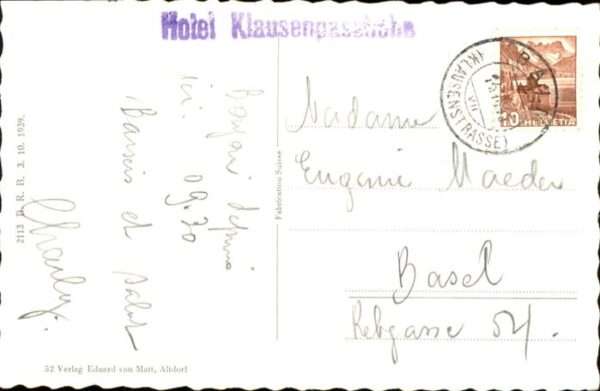 Hotel Klausenpasshöhe
(KLAUSENSTRASSE)
HELVETIA
09.30
Baisers et salut
Charly.
2113 B. R. B. 3. 10. 1939.
Fabrication Suisse
Madame
Eugenie Maeder
Basel
Rebgasse 54.
52 Verlag Eduard von Matt, Altdorf